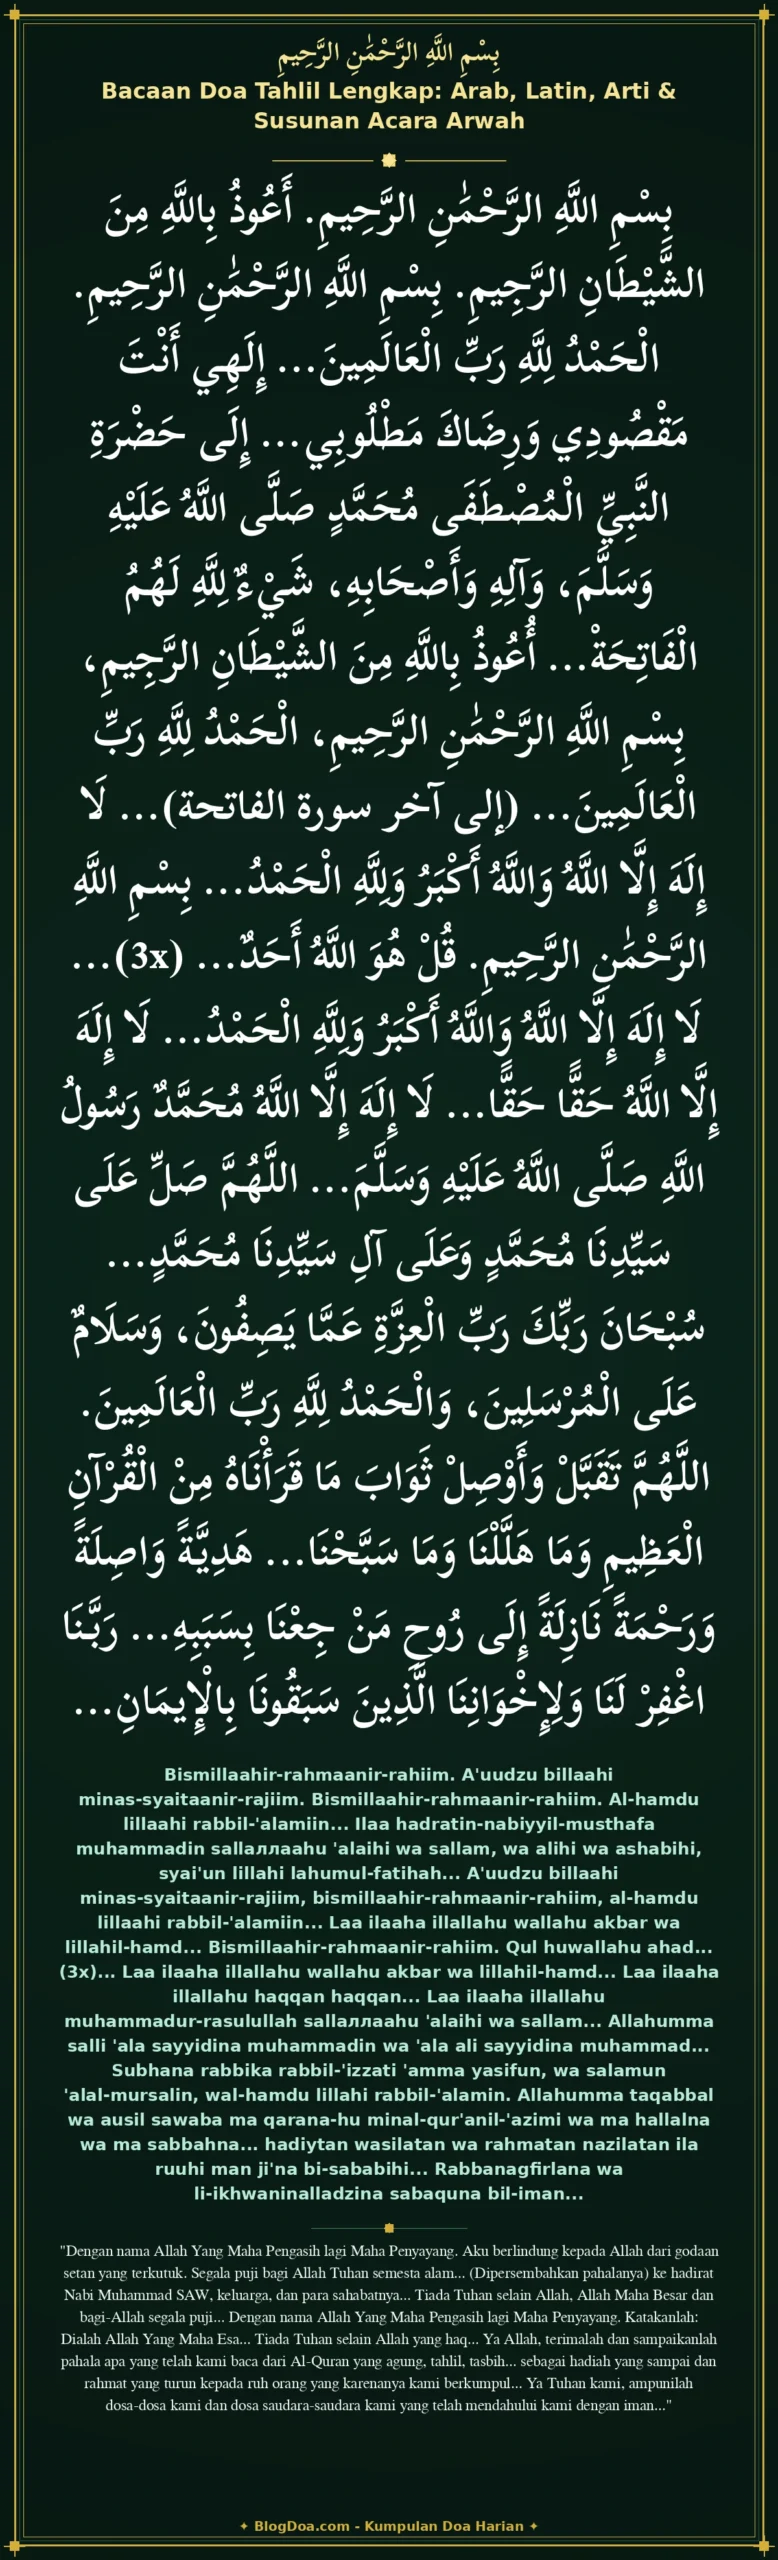 بِسْمِ اللَّهِ الرَّحْمَٰنِ الرَّحِيمِ
Bacaan Doa Tahlil Lengkap: Arab, Latin, Arti &
Susunan Acara Arwah
بِسْمِ اللَّهِ الرَّحْمَٰنِ الرَّحِيمِ. أَعُوذُ بِاللَّهِ مِنَ
الشَّيْطَانِ الرَّجِيمِ. بِسْمِ اللَّهِ الرَّحْمَٰنِ الرَّحِيمِ.
الْحَمْدُ لِلَّهِ رَبِّ الْعَالَمِينَ... إِلَهِي أَنْتَ
مَقْصُودِي وَرِضَاكَ مَطْلُوبِي... إِلَى حَضْرَةِ
النَّبِيِّ الْمُصْطَفَى مُحَمَّدٍ صَلَّى اللَّهُ عَلَيْهِ
وَسَلَّمَ، وَآلِهِ وَأَصْحَابِهِ، شَيْءٌ لِلَّهِ لَهُمُ
الْفَاتِحَةْ... أُعُوذُ بِاللَّهِ مِنَ الشَّيْطَانِ الرَّجِيمِ،
بِسْمِ اللَّهِ الرَّحْمَٰنِ الرَّحِيمِ، الْحَمْدُ لِلَّهِ رَبِّ
الْعَالَمِينَ... (إلى آخر سورة الفاتحة)... لَا
إِلَهَ إِلَّا اللَّهُ وَاللَّهُ أَكْبَرُ وَلِلَّهِ الْحَمْدُ... بِسْمِ اللَّهِ
الرَّحْمَٰنِ الرَّحِيمِ. قُلْ هُوَ اللَّهُ أَحَدٌ... (3x)...
لَا إِلَهَ إِلَّا اللَّهُ وَاللَّهُ أَكْبَرُ وَلِلَّهِ الْحَمْدُ... لَا إِلَهَ
إِلَّا اللَّهُ حَقًّا حَقًّا... لَا إِلَهَ إِلَّا اللَّهُ مُحَمَّدٌ رَسُولُ
اللَّهِ صَلَّى اللَّهُ عَلَيْهِ وَسَلَّمَ... اللَّهُمَّ صَلِّ عَلَى
سَيِّدِنَا مُحَمَّدٍ وَعَلَى آلِ سَيِّدِنَا مُحَمَّدٍ...
سُبْحَانَ رَبِّكَ رَبِّ الْعِزَّةِ عَمَّا يَصِفُونَ، وَسَلَامٌ
عَلَى الْمُرْسَلِينَ، وَالْحَمْدُ لِلَّهِ رَبِّ الْعَالَمِينَ.
اللَّهُمَّ تَقَبَّلْ وَأَوْصِلْ ثَوَابَ مَا قَرَأْنَاهُ مِنْ الْقُرْآنِ
الْعَظِيمِ وَمَا هَلَّلْنَا وَمَا سَبَّحْنَا... هَدِيَّةً وَاصِلَةً
وَرَحْمَةً نَازِلَةً إِلَى رُوحِ مَنْ جِعْنَا بِسَبَبِهِ... رَبَّنَا
اغْفِرْ لَنَا وَلِإِخْوَانِنَا الَّذِينَ سَبَقُونَا بِالْإِيمَانِ...
Bismillaahir-rahmaanir-rahiim. A'uudzu billaahi
minas-syaitaanir-rajiim. Bismillaahir-rahmaanir-rahiim. Al-hamdu
lillaahi rabbil-'alamiin... Ilaa hadratin-nabiyyil-musthafa
muhammadin sallaллaahu 'alaihi wa sallam, wa alihi wa ashabihi,
syai'un lillahi lahumul-fatihah... A'uudzu billaahi
minas-syaitaanir-rajiim, bismillaahir-rahmaanir-rahiim, al-hamdu
lillaahi rabbil-'alamiin... Laa ilaaha illallahu wallahu akbar wa
lillahil-hamd... Bismillaahir-rahmaanir-rahiim. Qul huwallahu ahad...
(3x)... Laa ilaaha illallahu wallahu akbar wa lillahil-hamd... Laa ilaaha
illallahu haqqan haqqan... Laa ilaaha illallahu
muhammadur-rasulullah sallaллaahu 'alaihi wa sallam... Allahumma
salli 'ala sayyidina muhammadin wa 'ala ali sayyidina muhammad...
Subhana rabbika rabbil-'izzati 'amma yasifun, wa salamun
'alal-mursalin, wal-hamdu lillahi rabbil-'alamin. Allahumma taqabbal
wa ausil sawaba ma qarana-hu minal-qur'anil-'azimi wa ma hallalna
wa ma sabbahna... hadiytan wasilatan wa rahmatan nazilatan ila
ruuhi man ji'na bi-sababihi... Rabbanagfirlana wa
li-ikhwaninalladzina sabaquna bil-iman...
"Dengan nama Allah Yang Maha Pengasih lagi Maha Penyayang. Aku berlindung kepada Allah dari godaan
setan yang terkutuk. Segala puji bagi Allah Tuhan semesta alam... (Dipersembahkan pahalanya) ke hadirat
Nabi Muhammad SAW, keluarga, dan para sahabatnya... Tiada Tuhan selain Allah, Allah Maha Besar dan
bagi-Allah segala puji... Dengan nama Allah Yang Maha Pengasih lagi Maha Penyayang. Katakanlah:
Dialah Allah Yang Maha Esa... Tiada Tuhan selain Allah yang haq... Ya Allah, terimalah dan sampaikanlah
pahala apa yang telah kami baca dari Al-Quran yang agung, tahlil, tasbih... sebagai hadiah yang sampai dan
rahmat yang turun kepada ruh orang yang karenanya kami berkumpul... Ya Tuhan kami, ampunilah
dosa-dosa kami dan dosa saudara-saudara kami yang telah mendahului kami dengan iman..."
✦ BlogDoa.com - Kumpulan Doa Harian ✦